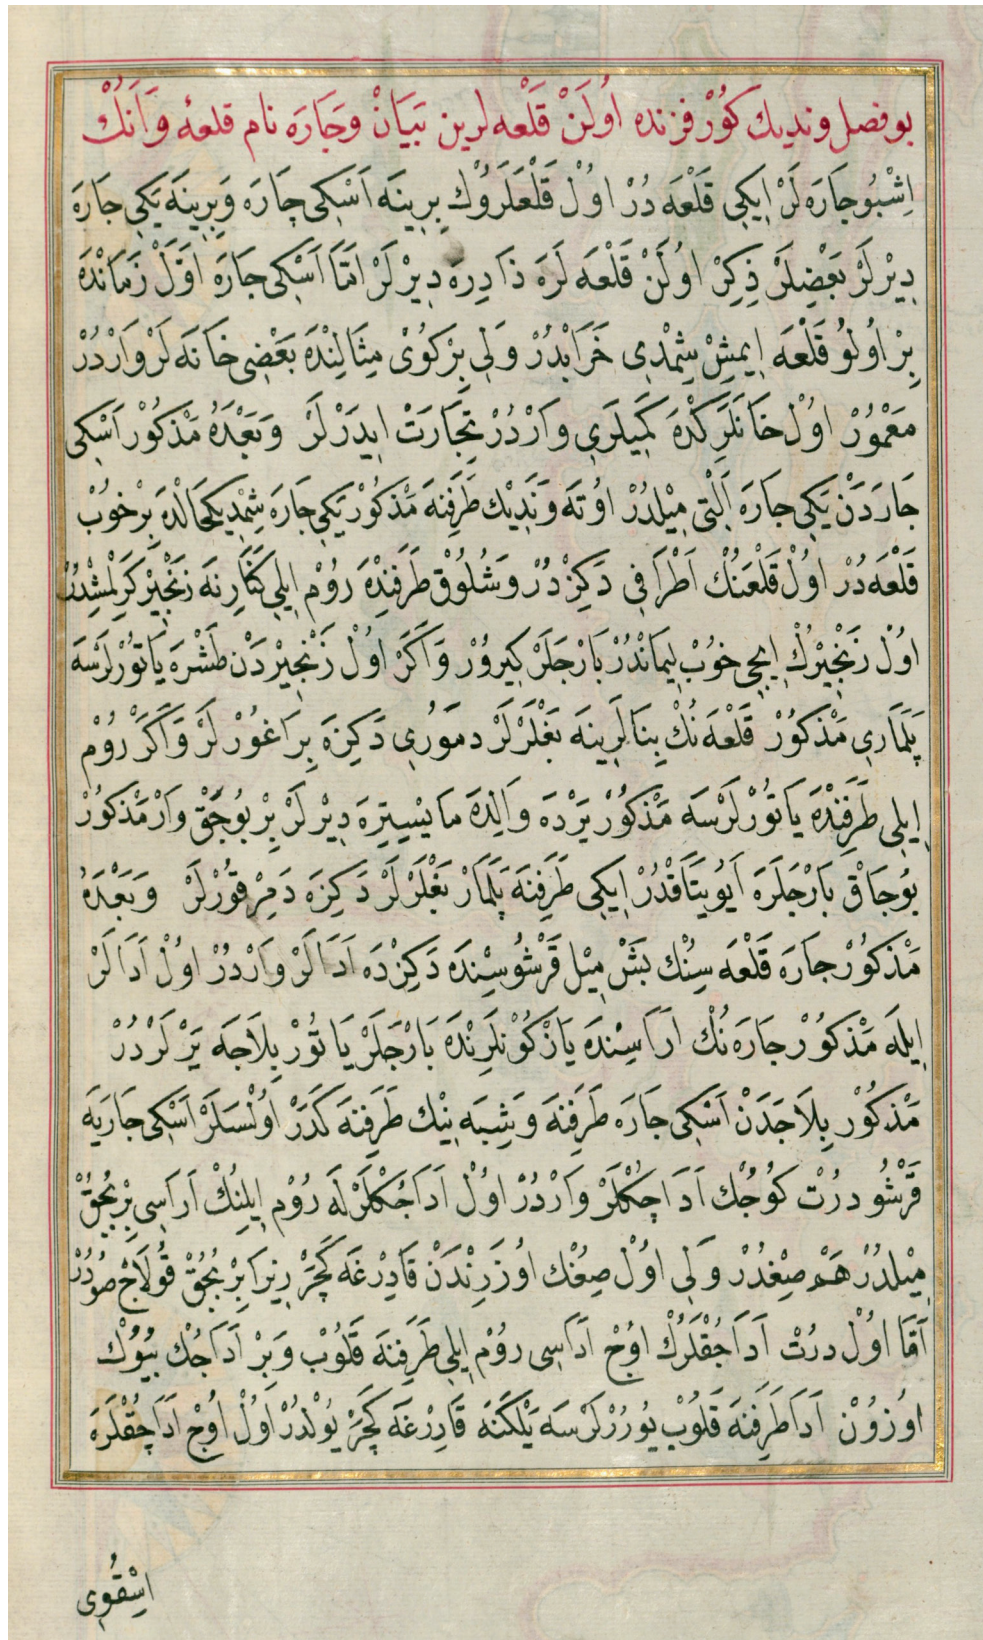 بو فصل وندیك كورْفزنده اُولَنْ قَلْعه لرین بَیَانْ وجَارَه نام قلعهٔ وَاَنُكْ
اِشْبُو جَارَه لَرْ اِیكِی قَلْعَه دُرْ اوُلْ قَلْعَلَرُوكْ بِرِینَه اَسْكِی جَارَه وَبِرِینَه یَكِی جَارَه
دِیرْلَرْ بَعْضِلَرْ ذِكِرْ اوُلَنْ قَلْعَه لَرَه ذَادِرَه دِیرْلَرْ اَمَّا اَسْكِی جَارَه اَوَّلْ زَمَانْدَه
بِرْ اُولُو قَلْعَه اِیمِشْ شِمْدِی خَرَابْدُرْ وَلِی بِرْ كوُیْ مِثَالِنْدَه بَعْضِی خَانَه لَرْ وَارْدُرْ
مَعْمُورْ اوُلْ خَانَلَرِكْدَه كَمِیلَرِی وَارْدُرْ تِجَارَتْ اِیدَرْلَرْ وَبَعْدَهُ مَذْكوُرْ اَسْكِی
جَارَدَنْ یَكِی جَارَه اَلْتِی مِیْلدُرْ اوُتَه وَنَدِیْك طَرَفِنَه مَذْكوُرْ یَكِی جَارَه شِمْدِیكِحَالْدَه بِرْ خوُبْ
قَلْعَه دُرْ اوُلْ قَلْعَنُكْ اَطْرَافِی دَكِزْ دُرْ وَشُلُوقْ طَرَفِنْدَه رُومْ اِیلِی كَنَارِنَه زَنْجِیْر كَرِلْمِشْدُرْ
اوُلْ زَنْجِیْرُكْ اِیچِی خوُبْ لِیمَانْدُرْ بَارْجَلَرْ كِیرُورْ وَاَكَرْ اوُلْ زَنْجِیْردَنْ طَشْرَه یَاتُورْلَرْسَه
پَلَمَارِی مَذْكوُرْ قَلْعَه نُكْ بِنَالَرِینَه بَغْلَرْلَرْ دمَوُرِی دَكِزَه بِرَاغُورْلَرْ وَاَكَرْ رُومْ
اِیلِی طَرَفِنْدَه یَاتُورْلَرْسَه مَذْكوُرْ یَرْدَه وَالِدَه مَایسِیتِرَه دِیرْلَرْ بِرْ بوُجَقْ وَارْ مَذْكوُرْ
بوُجَاقْ بَارْجَلَرَه اَیُو یَتَاقْدُرْ اِیكِی طَرَفِنَه پَلَمَارْ بَغْلَرْلَرْ دَكِزَه دَمِرْ قوُرْلَرْ وَبَعْدَهُ
مَذْكوُرْ جَارَه قَلْعَه سِنُكْ بَشْ مِیْل قَرْشُوسِنْدَه دَكِزْدَه اَدَالَرْ وَارْدُرْ اوُلْ اَدَالَرْ
اِیلَه مَذْكوُرْ جَارَه نُكْ اَرَاسِنْدَه یَازْ كوُنْلَرِنْدَه بَارْجَلَرْ یَاتُورْ بِلَاجَه یَرْلَرْدُرْ
مَذْكوُرْ بِلَاجَدَنْ اَسْكِی جَارَه طَرَفِنَه وَشِبَه نِیْك طَرَفِنَه كَدَرْ اوُلْسَلَرْ اَسْكِی جَارَیَه
قَرْشُو دُرْتْ كوُجُكْ اَدَاجِكْلَرْ وَارْدُرْ اوُلْ اَدَاجُكْلَرْلَه رُومْ اِیلِنُكْ اَرَاسِی بِرْ بُجُقْ
مِیْلدُرْ هَمْ صِغْدُرْ وَلِی اوُلْ صِغُكْ اوُزَرِنْدَنْ قَادِرْغَه كَچَرْ زِیرَا بِرْ بُجُقْ قُولَاجْ صُودُرْ
اَمَّا اوُلْ دُرْتْ اَدَاجُقْلَرُكْ اوُجْ اَدَاسِی رُومْ اِیلِی طَرَفِنَه قَلُوبْ وَبِرْ اَدَاجُكْ بُیُوكْ
اوُزُونْ اَدَا طَرَفِنَه قَلُوبْ یوُرُرْلَرْسَه یَلْكَنَه قَادِرْغَه كَچَرْ یوُلْدُرْ اوُلْ اوُجْ اَدَاجُقْلَرَه
اِسْقُوِی